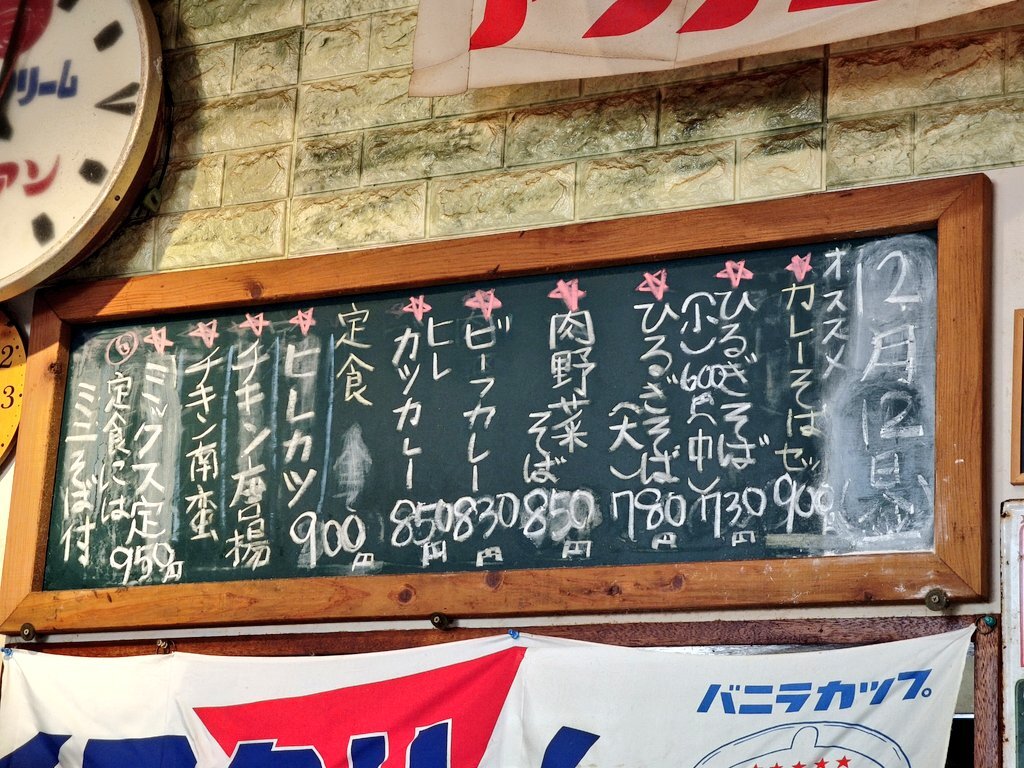 12月12日(金)
オススメ
☆カレーそばセット 900
☆ひるぎそば
(小)600円(中)730円
☆ひるぎそば
(大) 780円
☆肉野菜そば 850円
☆ビーフカレー 830円
☆ヒレカツカレー 850円
定食
☆ヒレカツ 900円
☆チキン唐揚
☆チキン南蛮
☆ミックス定 950円
定食には
ミニそば付
クリーム
アン
バニラカップ。
2
3